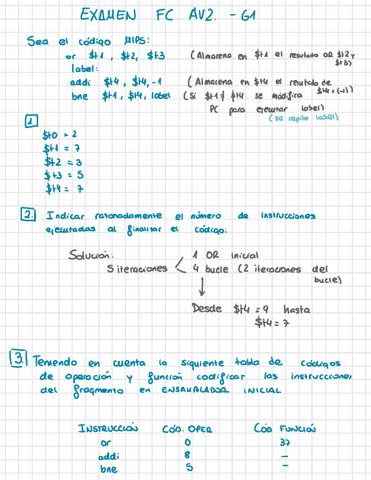 EXAMEN FC AV2. - G1
Sea el código MIPS:
or $t1, $t2, $t3 (Almacena en $t1 el resultado OR $t2 y $t3)
label:
addi $t4, $t4, -1 (Almacena en $t4 el resultado de $t4+(-1))
bne $t1, $t4, label (Si $t1≠$t4 se modifica
PC para ejecutar label)
(se repite label)
1.
$t0 = 2
$t1 = 7
$t2 = 3
$t3 = 5
$t4 = 7
2. Indicar razonadamente el número de instrucciones
ejecutadas al finalizar el código:
Solución: 1 OR inicial
5 iteraciones < 4 bucle (2 iteraciones del
bucle)
Desde $t4 = 9 hasta
$t4 = 7
3. Teniendo en cuenta la siguiente tabla de códigos
de operación y función codificar las instrucciones
del fragmento en ENSAMBLADOR INICIAL
INSTRUCCIÓN CÓD. OPER CÓD FUNCIÓN
or 0 37
addi 8 -
bne 5 -